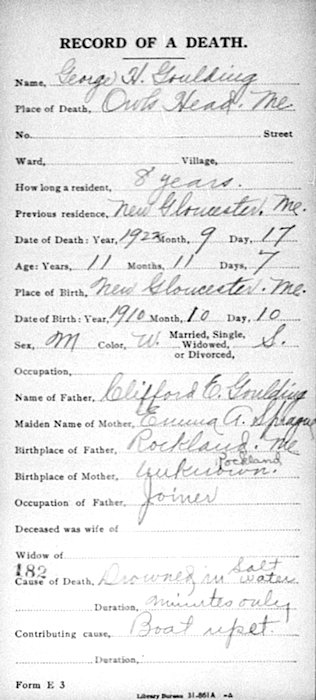 RECORD OF A DEATH.
Name, George H. Goulding
Place of Death, Owls Head. Me.
No. Street
Ward, Village,
How long a resident, 8 years.
Previous residence, New Gloucester. Me.
Date of Death: Year, 1923 Month, 9 Day, 17
Age: Years, 11 Months, 11 Days, 7
Place of Birth, New Gloucester. Me.
Date of Birth: Year, 1910 Month, 10 Day, 10
Sex, M Color, W. Married, Single, Widowed, or Divorced, S.
Occupation,
Name of Father, Clifford E. Goulding
Maiden Name of Mother, Emma A. Sprague
Birthplace of Father, Rockland. Me
Birthplace of Mother, Unknown. Rockland
Occupation of Father, Joiner
Deceased was wife of
Widow of
182
Cause of Death, Drowned in Salt water
Duration, minutes only
Contributing cause, Boat upset.
Duration,
Form E 3
Library Bureau 31-861A